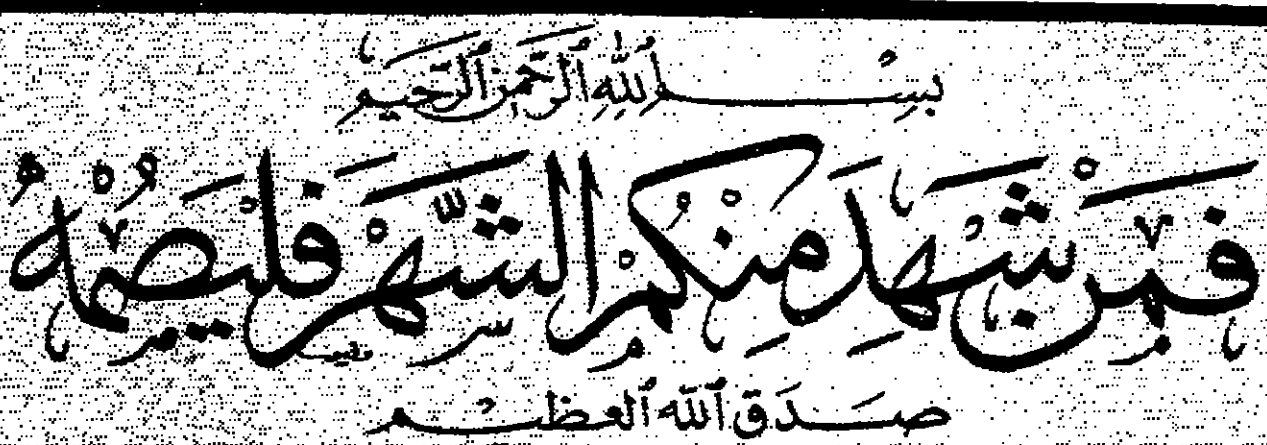 بِسْمِ ٱللَّهِ ٱلرَّحْمَٰنِ ٱلرَّحِيمِ
فَمَنْ شَهِدَ مِنْكُمُ الشَّهْرَ فَلْيَصُمْهُ
صَدَقَ ٱللَّه ٱلعَظِيم